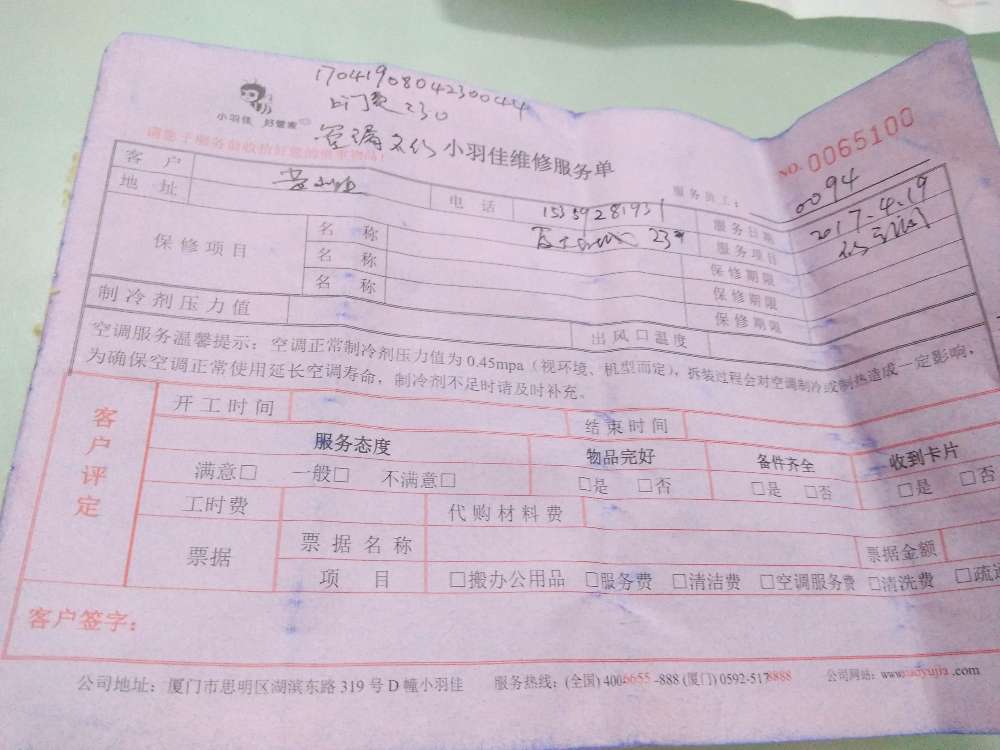 1704190804230044
上门费230
小羽佳 好管家
小羽佳维修服务单
NO. 0065100
请您于服务前收拾好您的贵重物品!
服务员工: 0094
客户
电话 15359281931
服务日期 2017.4.19
地址
23#
服务项目
保修项目
名称
保修期限
名称
保修期限
名称
保修期限
制冷剂压力值
出风口温度
空调服务温馨提示:空调正常制冷剂压力值为0.45mpa(视环境、机型而定),拆装过程会对空调制冷或制热造成一定影响,
为确保空调正常使用延长空调寿命,制冷剂不足时请及时补充。
客户评定
开工时间
结束时间
服务态度
物品完好
备件齐全
收到卡片
满意□ 一般□ 不满意□
□是 □否
□是 □否
□是 □否
工时费
代购材料费
票据
票据名称
票据金额
项目
□搬办公用品 □服务费 □清洁费 □空调服务费 □清洗费 □疏通
客户签字:
公司地址:厦门市思明区湖滨东路319号D幢小羽佳 服务热线:(全国)4006655-888(厦门)0592-5178888 公司网站:www.xiaoyujia.com